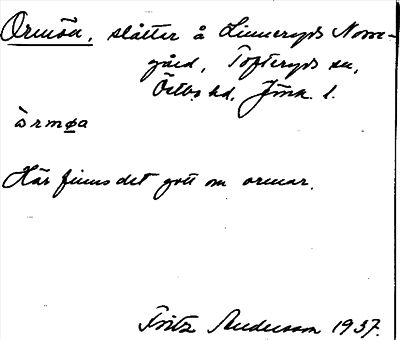 Ormöa, slåtter å Linneryds Norre-
gård, Tofteryds sn,
Östbo hd, Jönk. l.
òrmøa
Här finns det gott om ormar.
Fritz Andersson 1937.